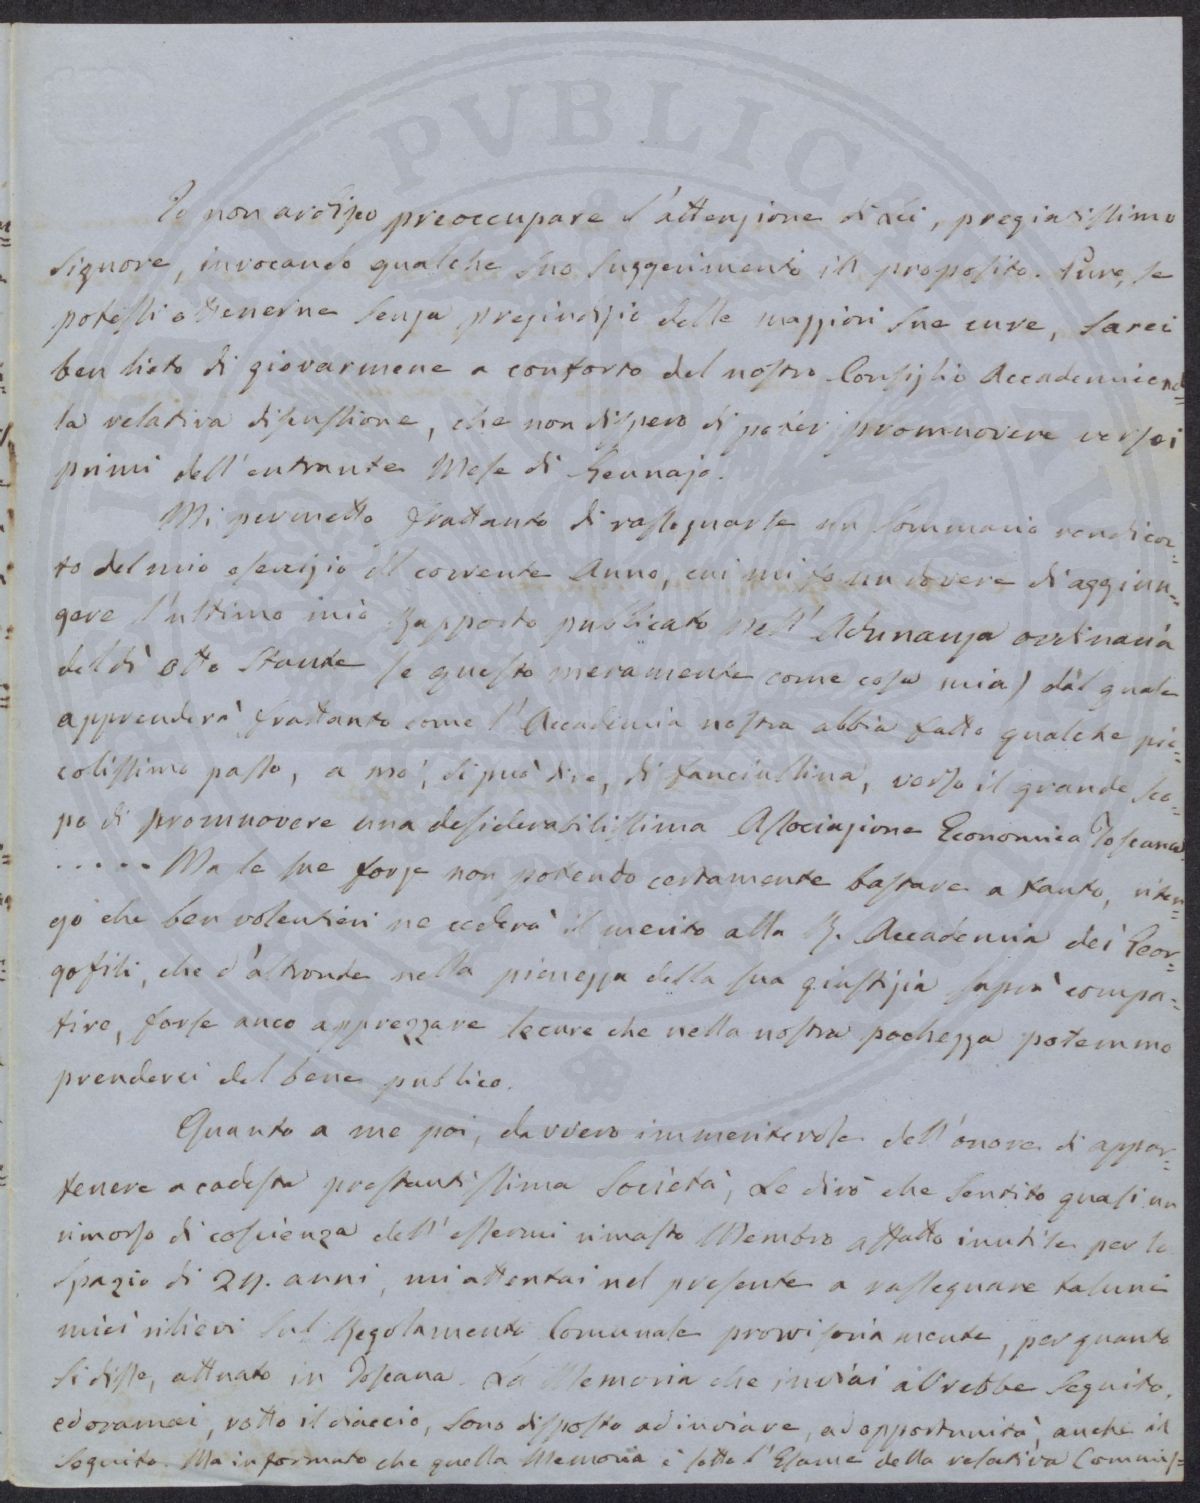 Io non ardisco preoccupare l'attenzione di Lei, pregiatissimo
Signore, invocando qualche suo suggerimento in proposito. Pure, se
potessi ottenerne senza pregiudizio delle maggiori sue cure, sarei
ben lieto di giovarmene a conforto del nostro Consiglio Accademico nel=
la relativa discussione, che non dispero di poter promuovere verso i
primi dell'entrante Mese di Gennajo.
Mi permetto frattanto di rassegnarle un sommario rendicon=
to del mio esercizio del corrente Anno, cui mi fo un dovere di aggiun=
gere l'ultimo mio Rapporto pubblicato nell'Adunanza ordinaria
del dì otto Stante (e questo meramente come cosa mia) dal quale
apprenderà frattanto come l'Accademia nostra abbia fatto qualche pic=
colissimo passo, a mo', si può dire, di fanciullina, verso il grande sco=
po di promuovere una desiderabilissima Associazione Economica Toscana.
..... Ma le sue forze non potendo certamente bastare a tanto, riten=
go che ben volentieri ne cederà il merito alla R. Accademia dei Geor=
gofili, che d'altronde nella pienezza della sua giustizia saprà compa=
tire, forse anco apprezzare le cure che nella nostra pochezza potemmo
prenderci del bene publico.
Quanto a me poi, davvero immeritevole dell'onore di appar=
tenere a codesta prestantissima Società, Le dirò che sentito quasi un
rimorso di coscienza dell'essermi rimasto Membro affatto inutile per lo
spazio di 29. anni, mi attentai nel presente a rassegnare taluni
miei rilievi sul Regolamento Comunale provvisoriamente, per quanto
si disse, attuato in Toscana. La Memoria che inviai avrebbe seguito,
ed oramai, rotto il diaccio, sono disposto ad inviare, ad opportunità, anche il
seguito. Ma informato che quella Memoria è sotto l'Esame della relativa Commis=
PVBLIC